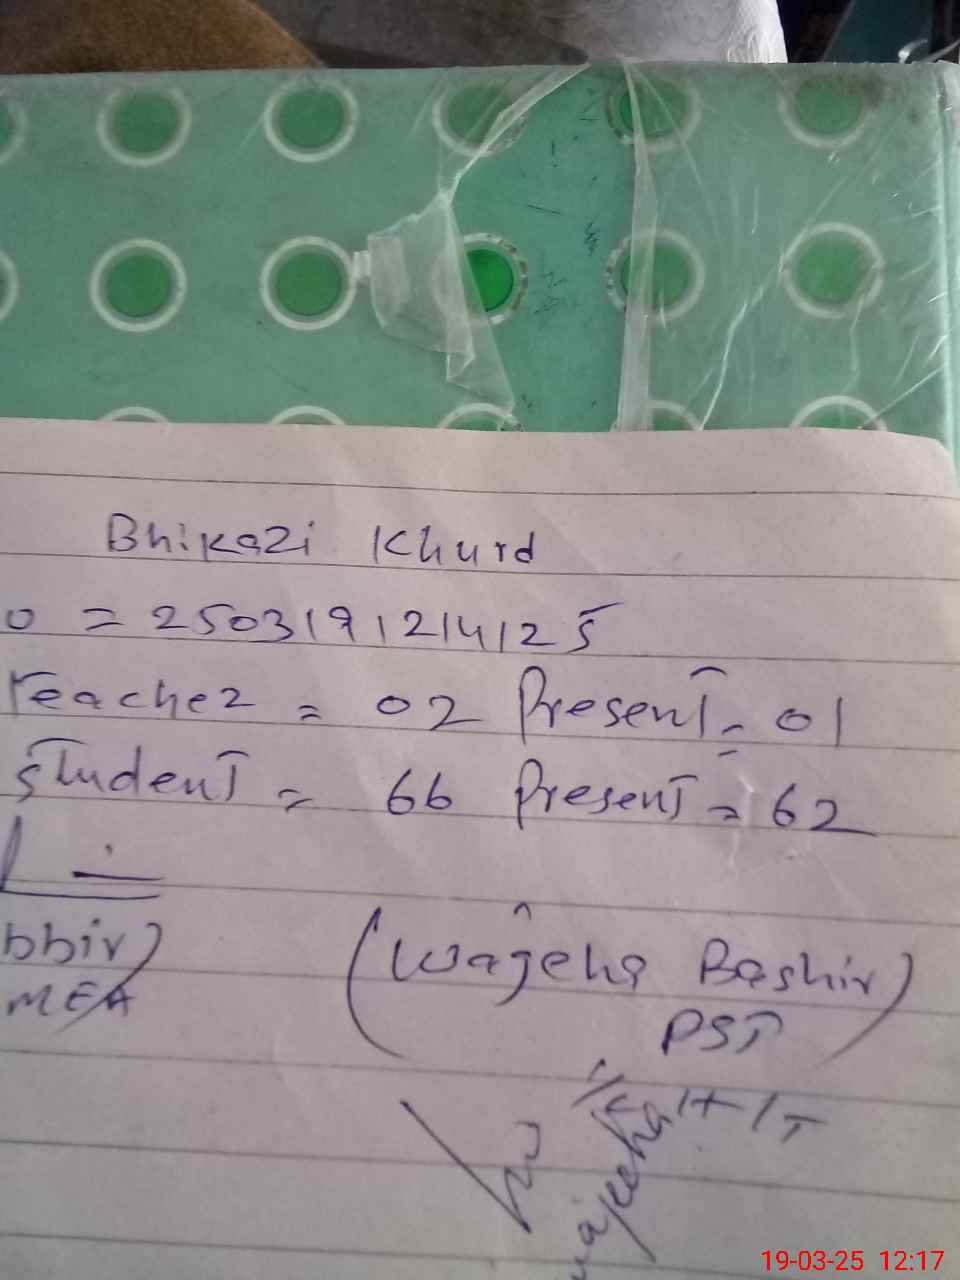 Bhikazi Khurd
0 = 2503191214125
Teacher = 02 Present = 01
Student = 66 Present = 62
bbir) (Wajeha Bashir)
MEA PST
19-03-25 12:17